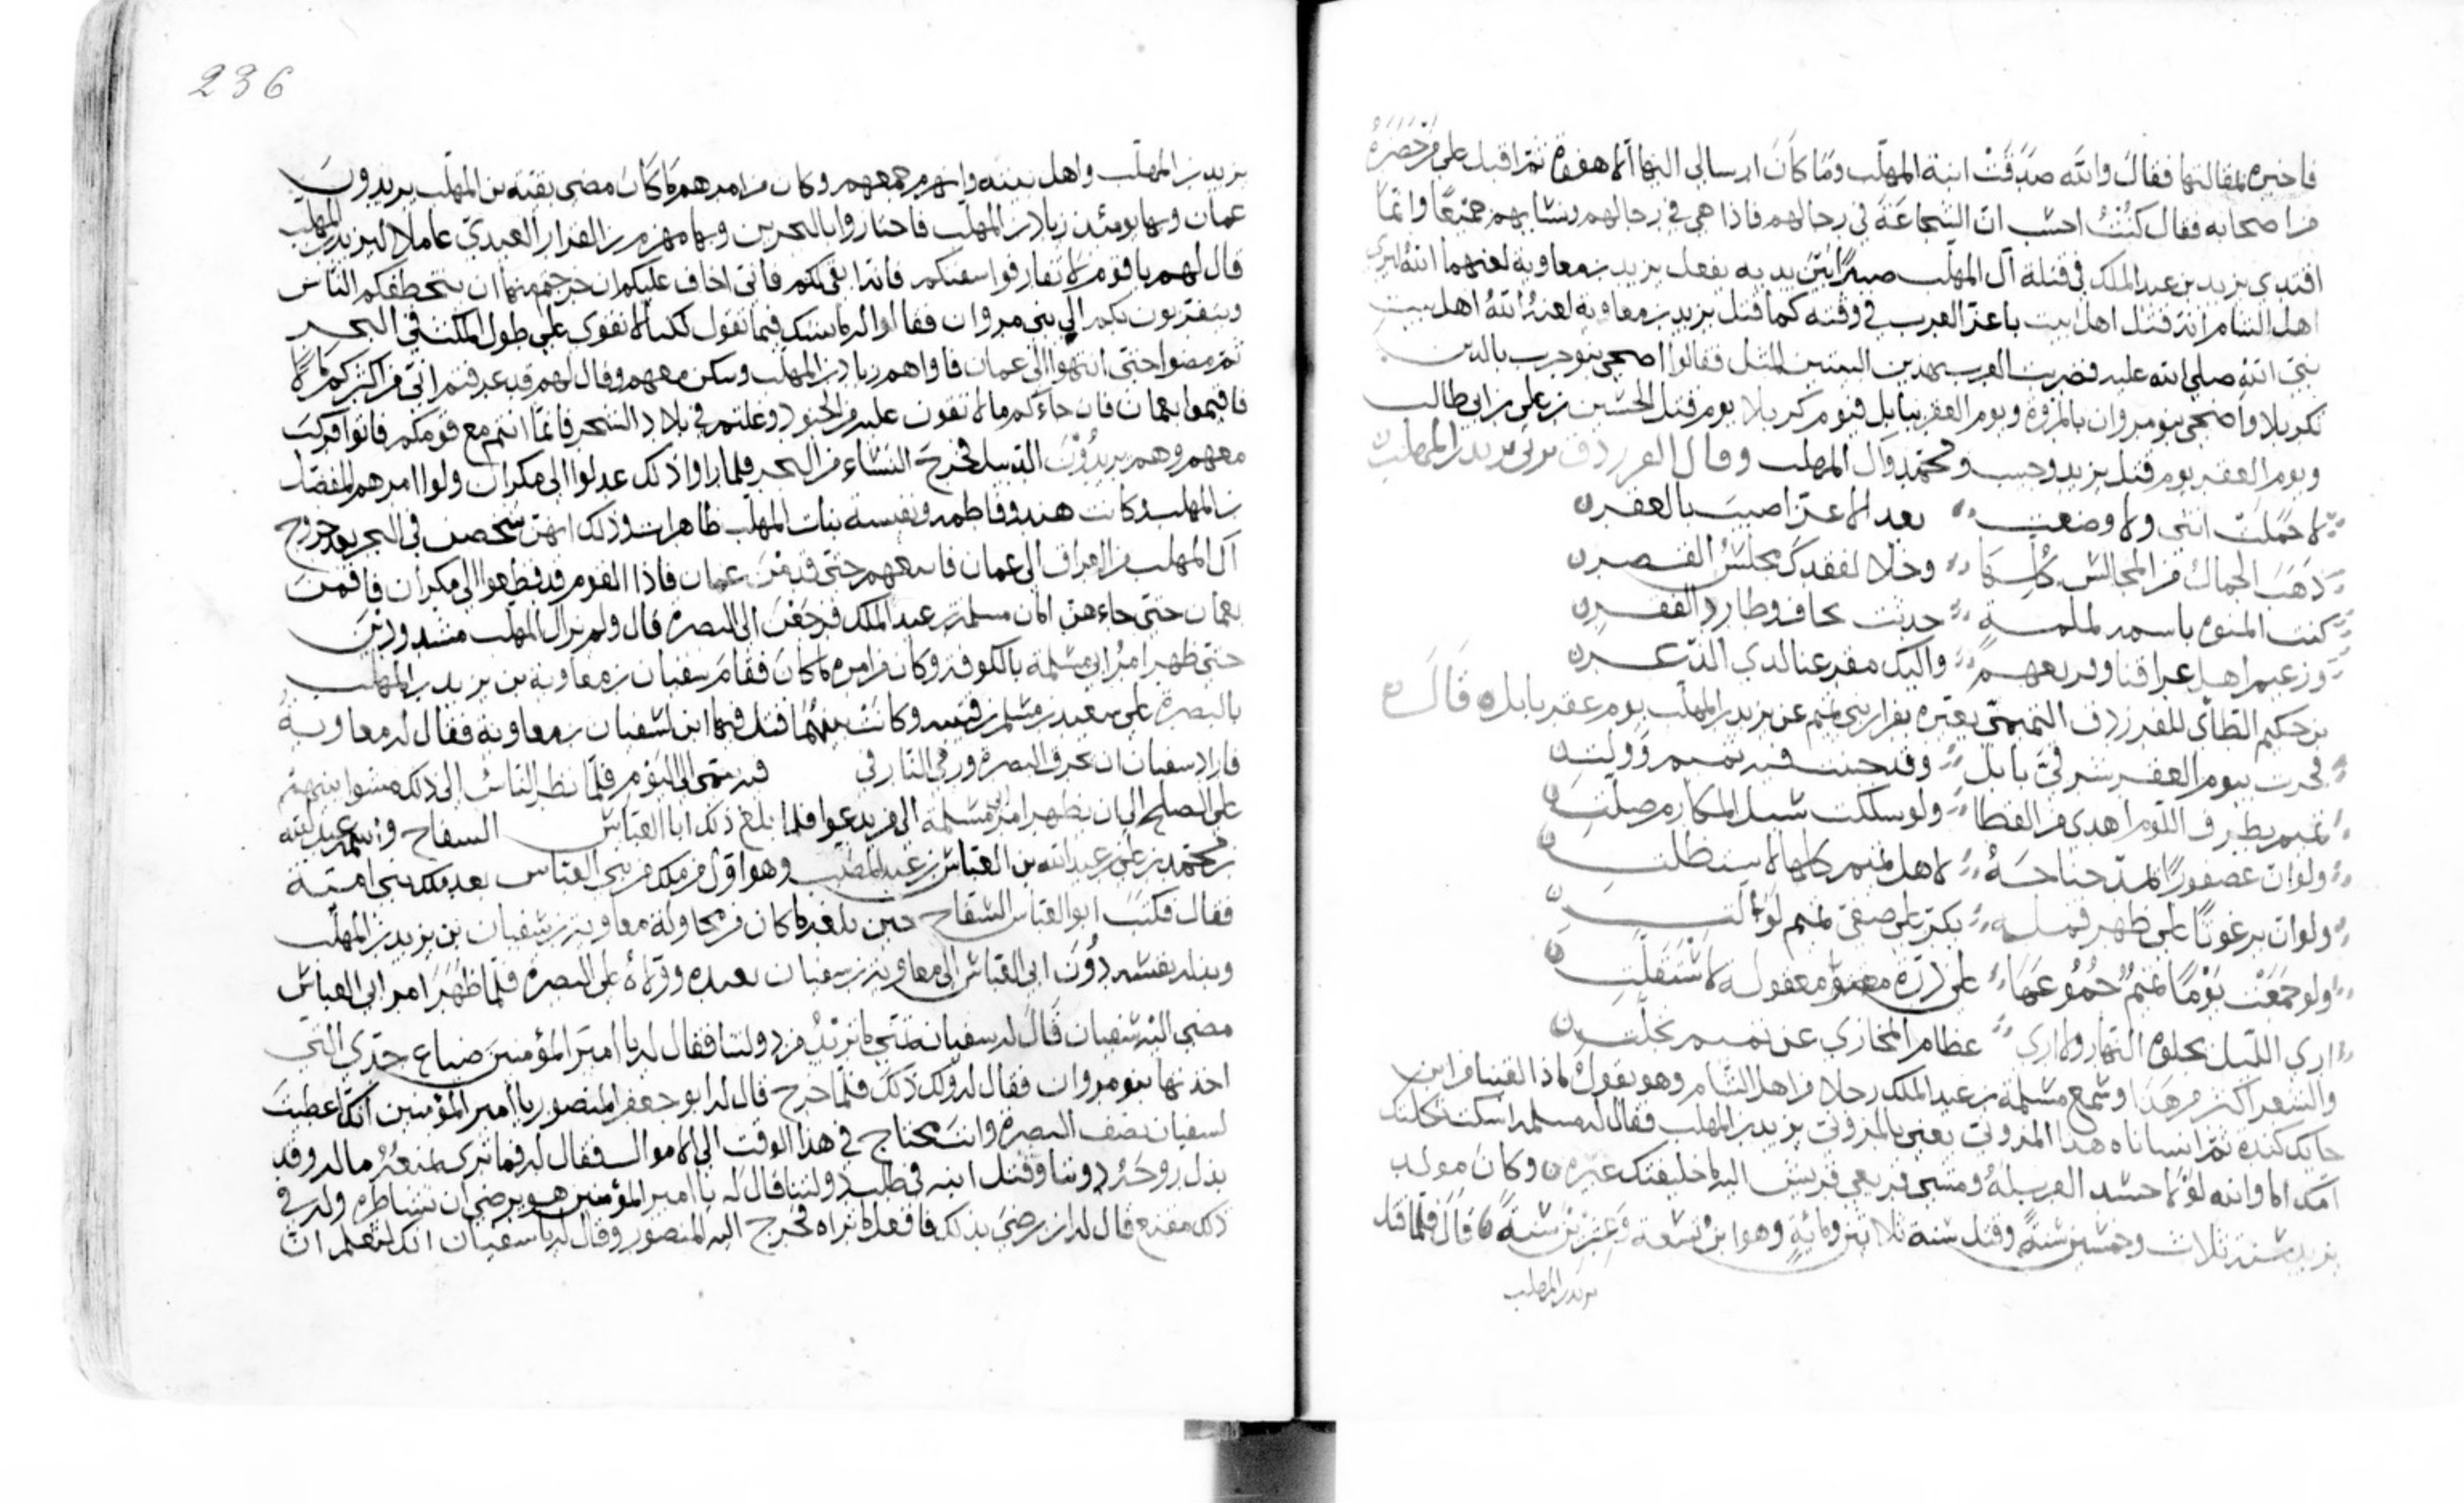 فاخبره بمقالتها فقال والله صدقت ابنة المهلب وما كان ارسالي اليها الا هفوة ثم اقبل على من حضره
من اصحابه فقال كنت احسب ان الشجاعة في رجالهم فاذا هي في رجالهم ونسايهم جميعًا وانما
اقتدى يزيد بن عبد الملك في قتله آل المهلب صبرًا بين يديه بفعل يزيد بن معاوية لعنهما الله
اهل الشام انه قتل اهل بيت باعز العرب في وقته كما قتل يزيد بن معاوية لعنه الله اهل بيت
نبي الله صلى الله عليه فضربت العرب بهذين البيتين المثل فقالوا اضحى بنو حرب بالدين
بكربلا واضحى بنو مروان بالمروة ويوم العقر ببابل فيوم كربلا يوم قتل الحسين بن علي بن ابي طالب
ويوم العقر يوم قتل يزيد وحبيب ومحمد وآل المهلب وقال الفرزدق يرثي يزيد بن المهلب
لا حملت انثى ولا وضعت بعد الاعز اصيب بالعقر
ذهب الجمال من المجالس كلها وخلا لفقدك مجلس القصر
كنت المنوه باسمه لملمة حدث يخاف وطارد الفقر
وزعيم اهل عراقنا وقريعهم واليك مفزعنا لدى الذعر
بن حكيم الطائي للفرزدق التميمي يعيره بفرار بني تميم عن يزيد بن المهلب يوم عقر بابل قال
فخرت بيوم العقر شرقي بابل وقد جبنت فيه تميم وولت
تميم بطرق اللوم اهدى من القطا ولو سلكت سبل المكارم ضلت
ولو ان عصفورًا يمد جناحه لاهل تميم كلها لاستظلت
ولو ان برغوثًا على ظهر قملة يكر على صفي تميم لولت
ولو جمعت يومًا تميم جموعها على ذرة معقولة لاستقلت
ارى الليل يجلوه النهار ولا ارى عظام المخازي عن تميم تجلت
والشعر اكثر من هذا وسمع مسلمة بن عبد الملك رجلا من اهل الشام وهو يقول ماذا لقينا من ابن
حائك كندة ثم انسانا هذا المزوني يعني بالمزوني يزيد بن المهلب فقال له مسلمة اسكت ثكلتك
امك اما والله لولا حسد العرب له ومشى قريعي قريش اليه ما خليفتك غيره وكان مولد
يزيد سنة ثلاث وخمسين سنة وقتل سنة ثلاثين ومائة وهو ابن تسعة وعشرين سنة قال فلما قتل
يزيد بن المهلب
236
يزيد بن المهلب واهل بيته وانهزم جمعهم وكان من امرهم ما كان مضى بقية بن المهلب يريدون
عمان وبها يومئذ زياد بن المهلب فاجتازوا بالبحرين وبها مهزم بن الفزار العبدي عاملا ليزيد بن المهلب
قال لهم يا قوم لا تفارقوا سفنكم فانه ابقى لكم فاني اخاف عليكم ان خرجتم منها ان يتخطفكم الناس
ويتقربون بكم الى بني مروان فقالوا له فيما تقول لكنا لا نقوى على طول المكث في البحر
ثم مضوا حتى انتهوا الى عمان فاواهم زياد بن المهلب وسكن معهم وقال لهم قد عرفتم اني من اكثركم مالًا
فاقيموا بعمان فان جاءكم ما لا تقوون عليه من الجنود دخلتم في بلاد الشحر فانما انتم مع قومكم فابوا فركب
معهم وهم يريدون فخرج النساء من البحر فلما راوا ذلك عدلوا الى مكران وولوا امرهم المفضل
بن المهلب وكانت هند وفاطمة ونفيسة بنات المهلب ظاهرات وذلك انهن شخصن في البحر بعد خروج
آل المهلب من العراق الى عمان فاتبعهم حتى قدمن عمان فاذا القوم قد قطعوا الى مكران فاقمن
بعمان حتى جاءهن امان مسلمة بن عبد الملك فرجعن الى البصرة قال ولم يزل آل المهلب مشدودين
حتى ظهر امر ابي مسلمة بالكوفة وكان من امره ما كان فقام سفيان بن معاوية بن يزيد بن المهلب
بالبصرة على سعيد بن مسلم بن قتيبة وكانت بينهما قتل فيها ابن لسفيان بن معاوية فقال له معاوية
فاراد سفيان ان يحرق البصرة ورمى النار في فيه يتمى الى اليوم فلما نظر الناس الى ذلك مشوا بينهم
على الصلح الى ان يظهر امر ابي مسلمة الى من يدعوا فلما بلغ ذلك ابا العباس السفاح واسمه عبد الله
بن محمد بن علي بن عبد الله بن العباس بن عبد المطلب وهو اول من ملك من بني العباس بعد ملك بني امية
فقال فكتب ابو العباس السفاح حين بلغه ما كان من محاولة معاوية بن سفيان بن يزيد بن المهلب
وبذله نفسه دون ابي العباس الى معاوية بن سفيان بعهده وولاه على البصرة فلما ظهر امر ابي العباس
مضى اليه سفيان قال له سفيان تمنى ما تريد من دولتنا فقال له يا امير المؤمنين ضياع جدي التي
اخذتها بنو مروان فقال له ولك ذلك فلما خرج قال له ابو جعفر المنصور يا امير المؤمنين انك اعطيت
لسفيان نصف البصرة وانت محتاج في هذا الوقت الى الاموال فقال له فما ترى بمنعه ما له وقد
بذل روحه دوننا وقتل ابنه في طلب دولتنا قال له يا امير المؤمنين هو يرضى ان تشاطره وله في
ذلك مقنع قال له ان رضي بذلك فافعل ما تراه فخرج اليه المنصور وقال له يا سفيان انك لتعلم ان